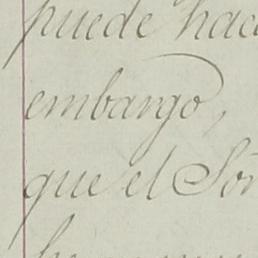 puede hace
embargo,
que el Sor